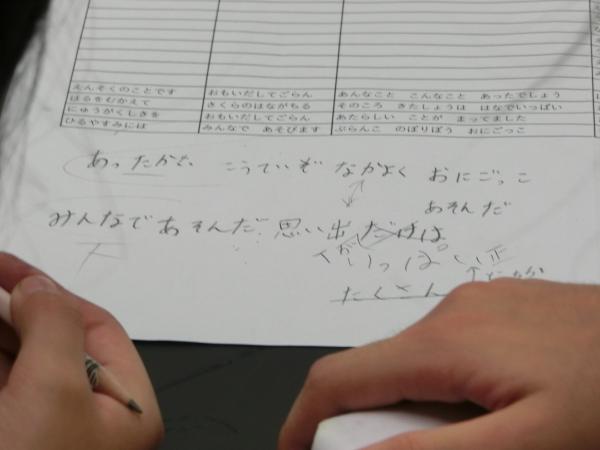 えんそくのことです おもいだしてごらん あんなこと こんなこと あったでしょう
はるをむかえて さくらのはながちる そのころ きたしょうは はなでいっぱい
にゅうがくしきを おもいだしてごらん あたらしい ことが まってました
ひるやすみには みんなで あそびます ぶらんこ のぼりぼう おにごっこ
あったかい こうていで なかよく おにごっこ
あそんだ
みんなであそんだ 思い出
がいっぱい
たくさん